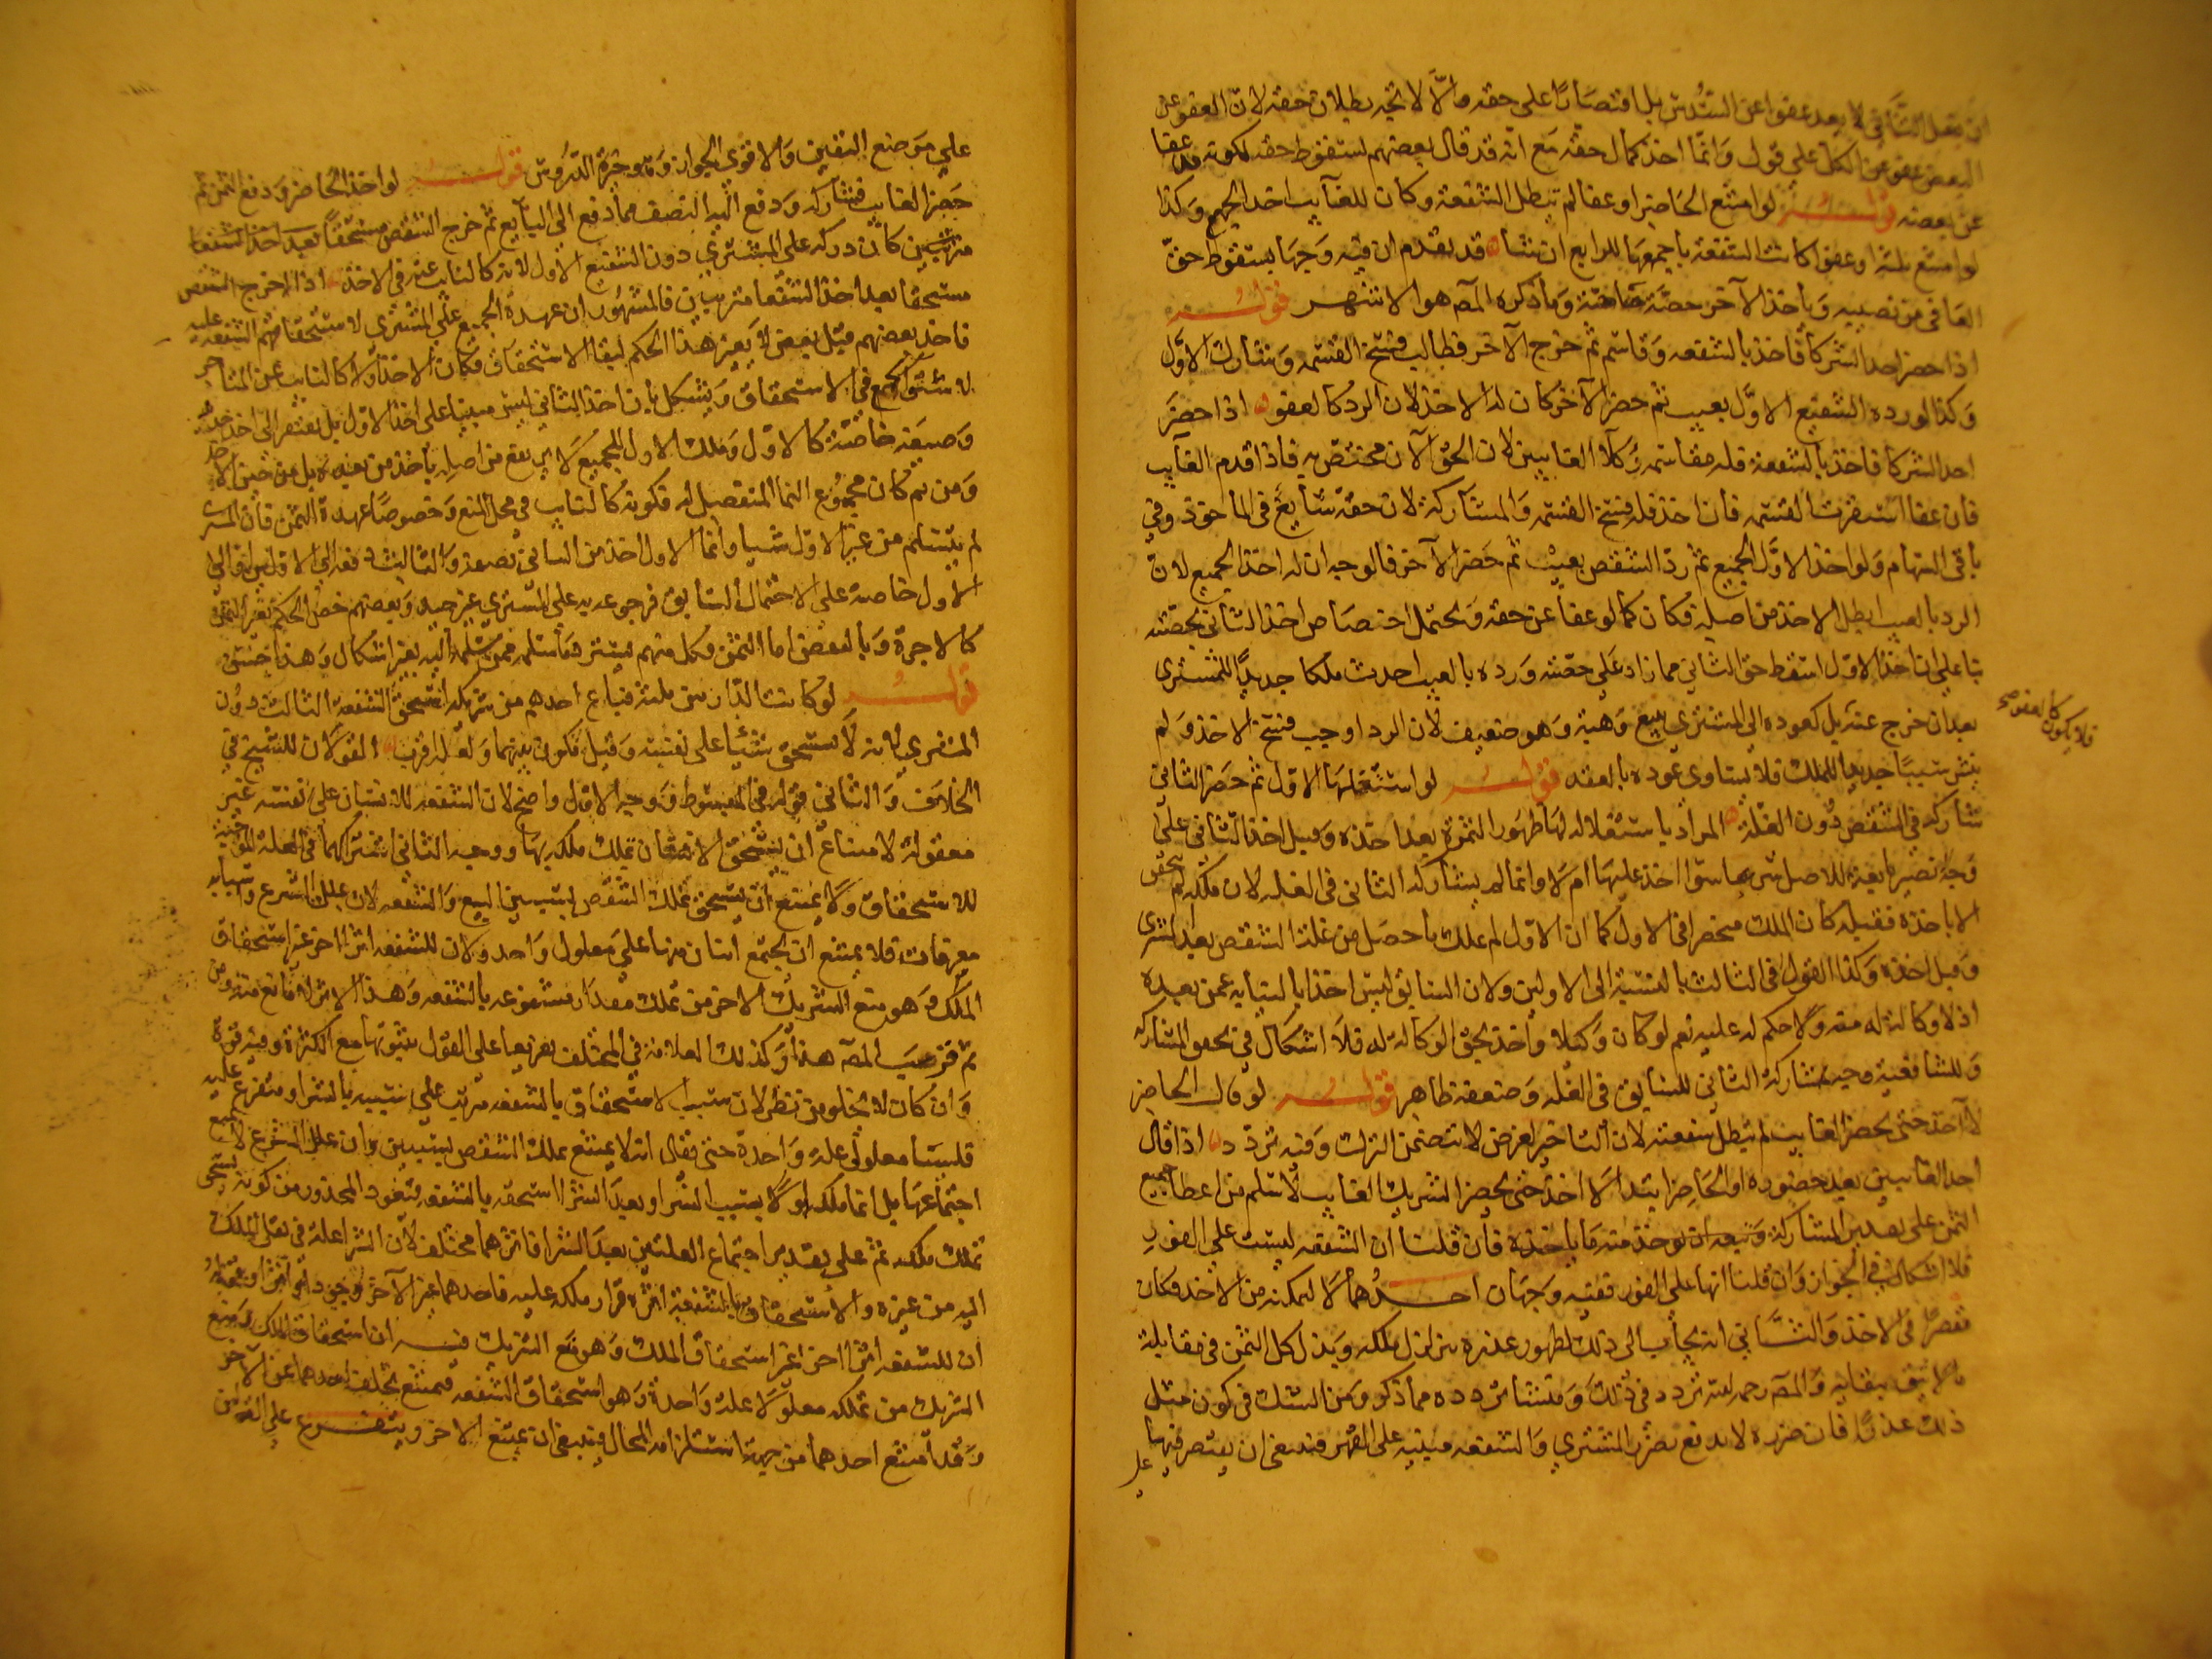 ان يفعل الثاني لا يعد عفوا عن السدس بل اقتصارا على حقه والا لاتجه بطلان حقه لان العفو عن
البعض عفو عن الكل على قول وانما اخذ كمال حقه مع انه قد قال بعضهم بسقوط حقه لكونه قد عفا
عن بعضه قوله لو امتنع الحاضر او عفا لم تبطل الشفعة وكان للغايب اخذ الجميع وكذا
لو امتنع ثلثة او عفوا كانت الشفعة باجمعها للرابع ان شاء قد تقدم ان فيه وجها بسقوط حق
العافي من نصيبه وياخذ الآخر حصته خاصة وما ذكره المص هو الاشهر قوله
اذا حضر احد الشركا فاخذ بالشفعه وقاسم ثم خرج الآخر فطالب فسخ القسمه وشارك الاول
وكذا لو رده الشفيع الاول بعيب ثم حضر الآخر كان له الاخذ لان الرد كالعفو اذا حضر
احد الشركا فاخذ بالشفعة فله مقاسمه وكلآ الغايبين لان الحق الآن مختص به فاذا قدم الغايب
فان عفا استقرت القسمه فان اخذ فله فسخ القسمه والمشاركة لان حقه شايع في المأخوذ وفي
باقي السهام ولو اخذ الاول الجميع ثم رد الشقص بعيب ثم حضر الآخر فالوجه ان له اخذ الجميع لان
الرد بالعيب ابطل الاخذ من اصله فكان كما لو عفا عن حقه ويحتمل اختصاص اخذ الثاني بحصته
بنا على ان اخذ الاول اسقط حق الثاني مما زاد على حصته ورده بالعيب احدث ملكا جديدا للمشتري
بعد ان خرج عنه بل كعوده الى المشتري ببيع وهبة وهو ضعيف لان الرد اوجب فسخ الاخذ ولم
فلا يكون كالعفو صح
ينش سببا جديدا للملك فلا يساوي عوده بالعقد قوله لو استغلها الاول ثم حضر الثاني
شاركه في الشقص دون الغلة المراد باستغلاله لها ظهور الثمرة بعد اخذه وقبل اخذ الثاني على
وجه تصير تابعة للاصل شرعا سوا اخذ عليها ام لا وانما لم يشاركه الثاني في الغله لان ملكه لم يتحقق
الا باخذه فقبله كان الملك منحصرا في الاول كما ان الاول لم يملك ما حصل من غلة الشقص بعد الشرى
وقبل اخذه وكذا القول في الثالث بالنسبة الى الاولين ولان السابق ليس اخذا بالنيابه عمن بعده
اذ لا وكالة له منه ولا حكم له عليه نعم لو كان وكيلا واخذ بحق الوكالة له فلا اشكال في تحقق المشاركه
وللشافعية وجه بمشاركة الثاني للسابق في الغله وضعفه ظاهر قوله لو قال الحاضر
لا آخذ حتى يحضر الغايب لم تبطل شفعته لان التاخير لغرض لا يتضمن الترك وفيه تردد اذا قال
احد الغايبين بعد حضوره او الحاضر ابتدا لا اخذ حتى يحضر الشريك الغايب لاسلم من اعطا جميع
الثمن على تقدير المشاركة وبعد ان يوخذ منه ما ياخذه فان قلنا ان الشفعه ليست على الفور
فلا اشكال في الجواز وان قلنا انها على الفور ففيه وجهان احدهما لا لتمكنه من الاخذ فكان
مقصرا في الاخذ والثاني انه يجاب الى ذلك لظهور عذره بتزلزل ملكه وبذل كل الثمن في مقابلة
ما لا يثق ببقايه والمص رحمه الله تردد في ذلك ومنشا تردده مما ذكر ومن الشك في كون مثل
ذلك عذرا فان ضرره لا يدفع بضرر المشتري والشفعه مبنية على القهر فينبغي ان يقتصر فيها
على
علي موضع اليقين والاقوى الجواز وهو خيرة الدروس قوله لو اخذ الحاضر ودفع الثمن ثم
حضر الغايب فشاركه ودفع اليه النصف مما دفع الى البايع ثم خرج الشقص مستحقا بعد اخذ الشفعا
مترتبين كان دركه على المشتري دون الشفيع الاول لانه كالنايب عنه في الاخذ اذا اخرج الشقص
مستحقا بعد اخذ الشفعا مترتبين فالمشهور ان عهدة الجميع على المشتري لاستحقاقهم الشفعة عليه
فاخذ بعضهم قبل بعض لا يغير هذا الحكم لبقا الاستحقاق فكان الاخذ اولا كالنايب عن المتأخر
لاستوا الجميع في الاستحقاق ويشكل بان اخذ الثاني ليس مبنيا على اخذ الاول بل يفتقر الى اخذ جديد
وصيغة خاصة كالاول وملك الاول للجميع لا يرتفع من اصله باخذ من بعده بل من حين الاخذ
ومن ثم كان مجموع النما المنفصل له فكونه كالنايب في محل المنع وخصوصا عهدة الثمن فان المشتري
لم يتسلم من غير الاول شيا وانما الاول اخذ من الثاني نصفه والثالث دفعه الى الاول
الاول خاصة على الاحتمال السابق فرجوعه به على المشتري غير جيد وبعضهم خص الحكم بغير الثمن
كالاجرة وبالنقص اما الثمن فكل منهم يسترد ما سلمه ممن سلمه اليه بغير اشكال وهذا حسن
قوله لو كانت الدار بين ثلثة فباع احدهم من شريكه استحق الشفعة الثالث دون
المشتري لانه لا يستحق شيئا على نفسه وقيل تكون بينهما ولعله اقرب القولان للشيخ في
الخلاف والثاني قوله في المبسوط ووجه الاول واضح لان الشفعه للانسان على نفسه غير
معقولة لامتناع ان يستحق الانسان تملك ملكه بها ووجه الثاني اشتراكهما في العلة الموجبة
للاستحقاق ولا يمتنع ان يستحق تملك الشقص بسببين البيع والشفعه لان علل الشرع واسبابه
معرفات فلا يمتنع ان يجتمع اثنان منها على معلول واحد ولان للشفعه اثرا اخر غير استحقاق
الملك وهو منع الشريك الاخر من تملك مقدار مشفوعه بالشفعه وهذا الاثر لا مانع منه ومن
ثم قرب المص هذا وكذلك العلامة في المختلف تفريعا على القول بثبوتها مع الكثرة وفيه قوة
وان كان لا يخلو من نظر لان سبب الاستحقاق بالشفعه مترتب على سببيه بالشرا ومتفرع عليه
فليسا معلولي علة واحدة حتى يقال انه لا يمتنع تملك الشقص بسببين وان علل الشرع لا يمتنع
اجتماعها بل انما ملكه اولا بسبب الشرا وبعد الشرا استحقه بالشفعه فيعود المحذور من كونه يستحق
تملك ملكه ثم على تقدير اجتماع العلتين بعد الشرا فاثرهما مختلف لان الشرا علة في نقل الملك
اليه من غيره والاستحقاق بالشفعة اثره قرار ملكه عليه فاحدهما غير الآخر
ان للشفعه اثرا اخر غير استحقاق الملك وهو منع الشريك ففيه ان استحقاق الملك ومنع
الشريك من تملكه معلولا علة واحدة وهو استحقاق الشفعه فيمتنع تخلف احدهما عن الآخر
وقد امتنع احدهما من جهة استلزامه المحال فينبغي ان يمتنع الاخر ويتفرع على القولين